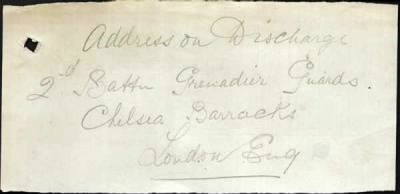 Address on Discharge
2nd Battn Grenadier Guards.
Chelsea Barracks
London Eng